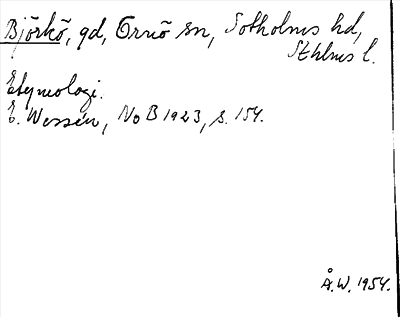 Björkö, gd, Ornö sn, Sotholms hd,
Sthlms l.
Etymologi.
E. Wessén, NoB 1923, s. 154.
Å.W. 1954.